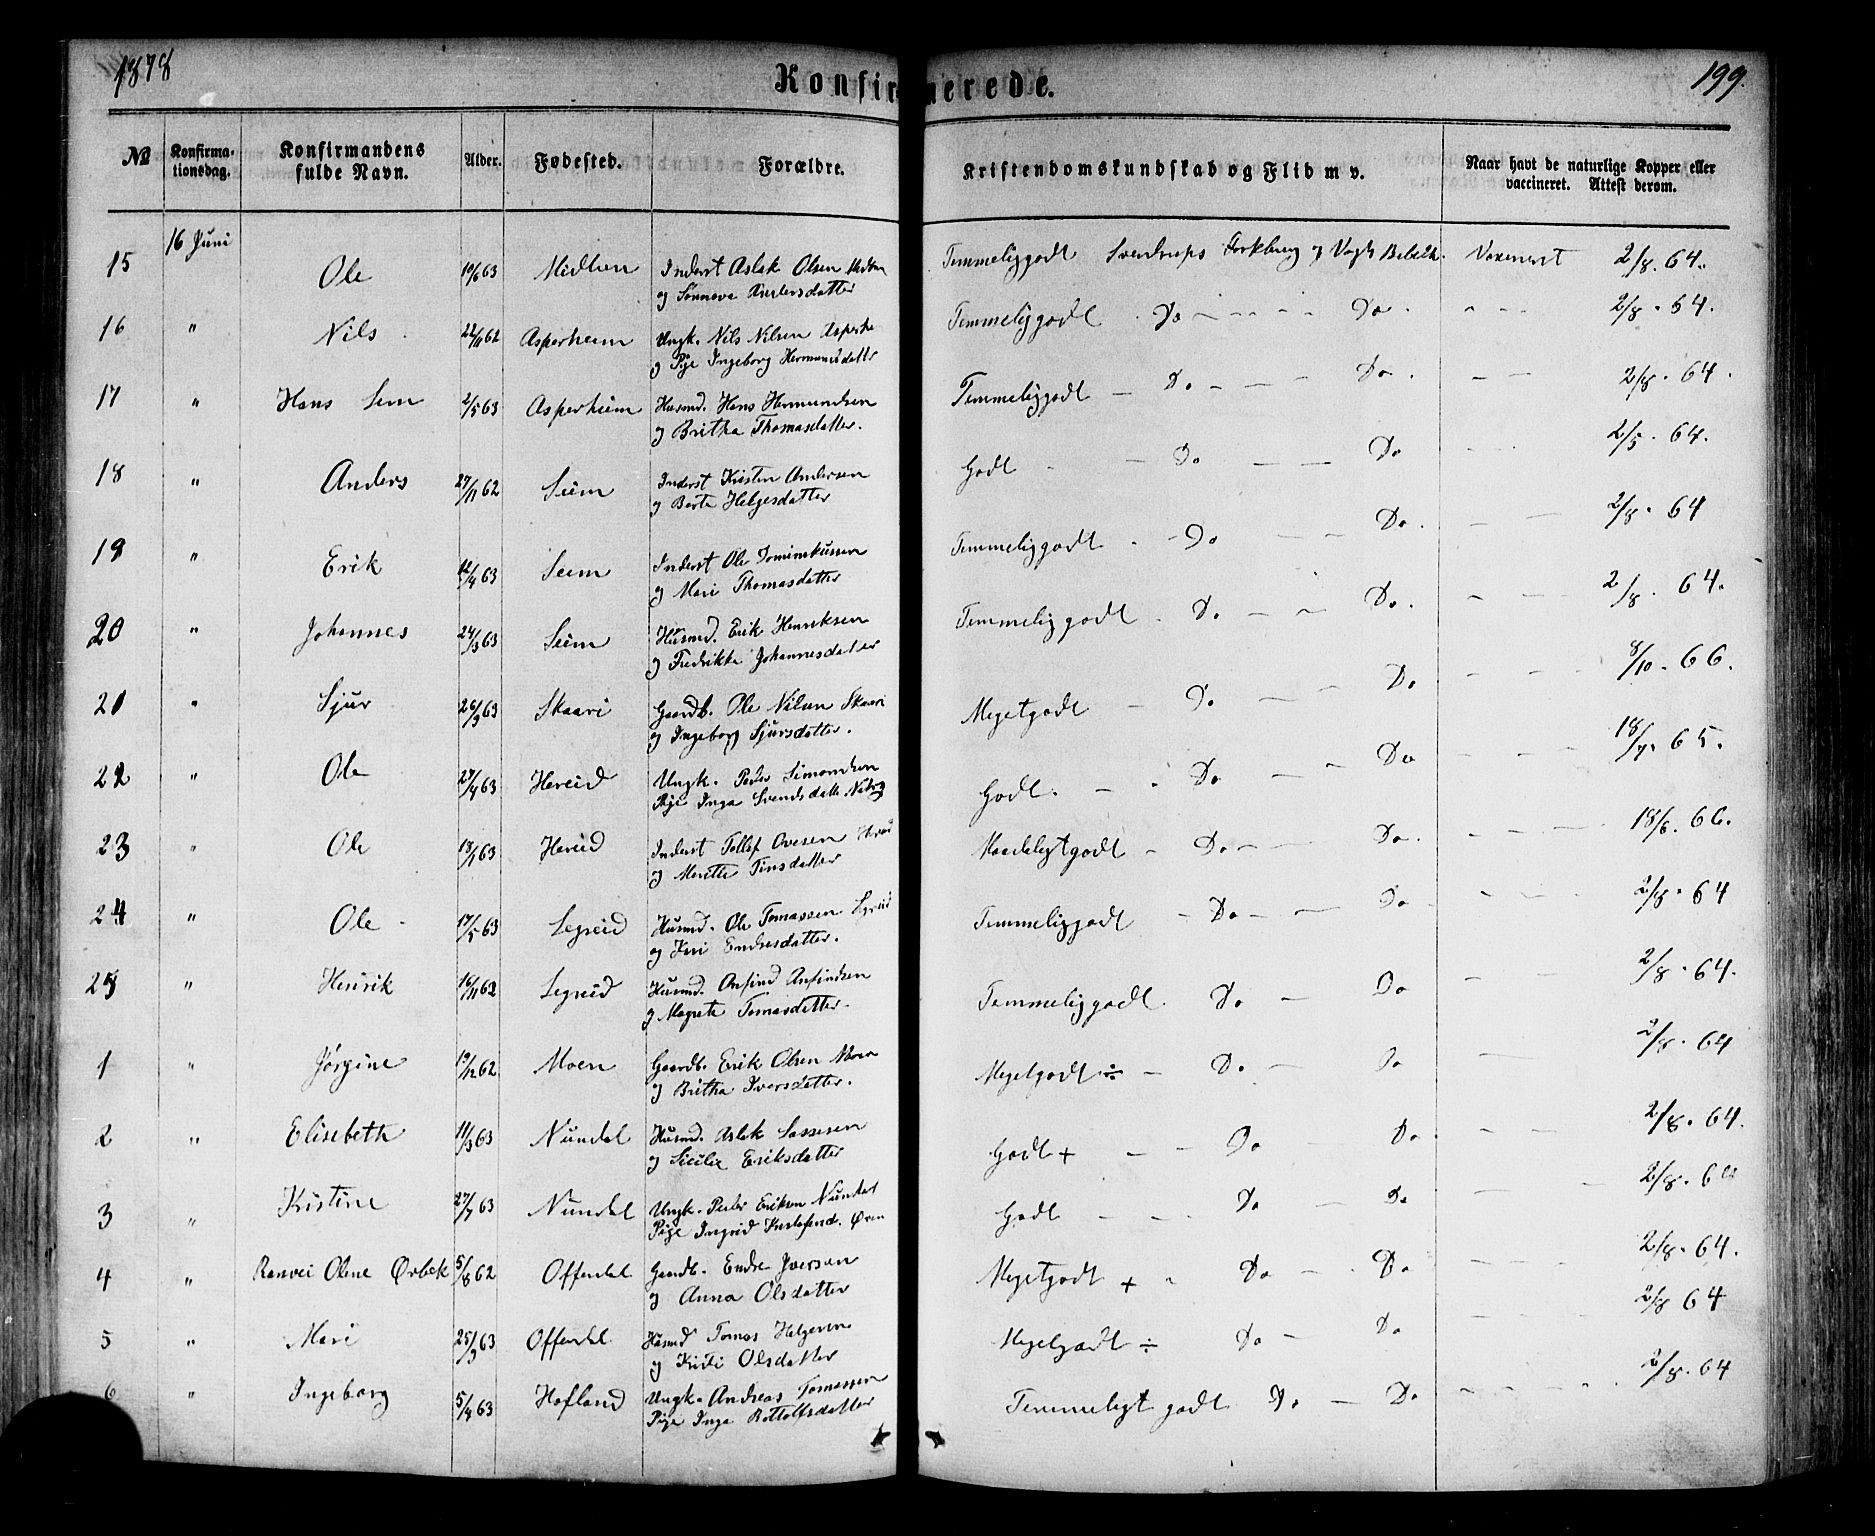 1878
Konfirmerede.
199.
№
Konfirma-
tionsdag.
Konfirmandens
fulde Navn.
Alder.
Fødested.
Forældre.
Kristendomskundskab og Flid m v.
Naar havt de naturlige Kopper eller
vaccineret. Attest derom.
16 Juni
15 Ole 10/6 63 Inderst Aslak Olsen Temmeliggodt Sverdrups Forklaring og Vogts Bibelh. 2/8. 64.
og Sønneva Andersdatter
16 " Nils 22/11 62 Asperheim Ungk. Nils Nilsen Temmeliggodt Do Do 2/8. 64.
og Pige Ingeborg Hermundsdatter
17 " Hans Sem 2/5 63 Asperheim Husmd. Hans Hermundsen Temmeliggodt Do Do 2/8. 64.
og Britha Thomasdatter.
18 " Anders 27/11 62 Seim Inderst Kristen Andersen Godt Do Do 2/5. 64.
og Berte Helgesdatter
19 " Erik 12/4 63 Seim Inderst Ole Temmeliggodt Do Do. 2/8. 64
og Mari Thomasdatter
20 " Johannes 24/3 63 Seim Husmd. Erik Henriksen Temmeliggodt Do Do. 2/8. 64.
og Fredrikke Johannesdatter
21 " Sjur 26/3 63 Skaari Gaardb. Ole Nilsen Skaari Megetgodt Do Do 8/10. 66.
og Ingeborg Sjursdatter.
22 " Ole 27/4 63 Hereid Ungk. Peder Simondsen Godt. Do Do 18/7. 65.
Pige Inga Svendsdatter
23 " Ole 13/1 63 Hereid Inderst Tollef Ovesen Maadeligtgodt Do Do. 18/6. 66.
og Merette
24 " Ole 17/5 63 Legreid Husmd. Ole Tomassen Temmeliggodt Do Do 2/8. 64
og Endresdatter.
25 " Henrik 16/11 62 Legreid Husmd. Anfind Anfindsen Temmeliggodt Do Do 2/8. 64.
og Magrete Tomasdatter.
1 " Jørgine 19/12 62 Moen Gaardb. Erik Olsen Moen Megetgodt ÷ Do Do 2/8. 64
og Britha Iversdatter.
2 " Elisebeth 11/3 63 Nundal Husmd. Aslak Lassesen Godt + Do Do 2/8. 64.
og Sicilie Eriksdatter
3 " Kristine 27/7 63 Nundal Ungk. Peder Eriksen Nundal Godt Do Do 2/8.
Pige Ingrid
4 " Ranvei Oline Ørbek 5/8 62 Offerdal Gaardb. Endre Iversen Megetgodt + Do Do 2/8. 64.
og Anna Olsdatter
5 " Mari 25/3 63 Offerdal Husmd Tomas Helgesen Megetgodt ÷ Do Do 2/8 64
og Kristi Olsdatter
6 " Ingeborg 5/4 63 Hofland Ungk. Andreas Tomassen Temmeligt godt Do Do 2/8. 64
Pige Inga Bottolfsdatter